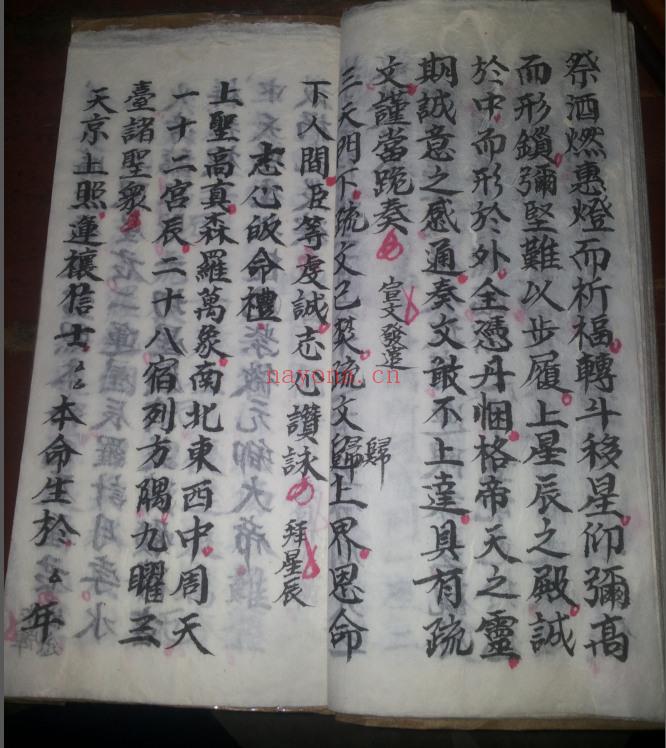 祭酒燃惠燈而祈福轉斗移星仰彌高
而形鎖彌堅難以步履上星辰之殿誠
於中而形於外全憑丹悃格帝天之靈
期誠意之感通奏文敢不上達具有疏
文謹當跪奏 宣文發遣
三天門下疏文已焚疏文歸上界恩命
歸
下人間臣等虔誠志心讚詠 拜星辰
志心皈命禮
上聖高真森羅萬象南北東西中周天
一十二宮辰二十八宿列方隅九曜三
臺諸聖衆
天京上照運禳信士 本命生於 年
nayona.cn